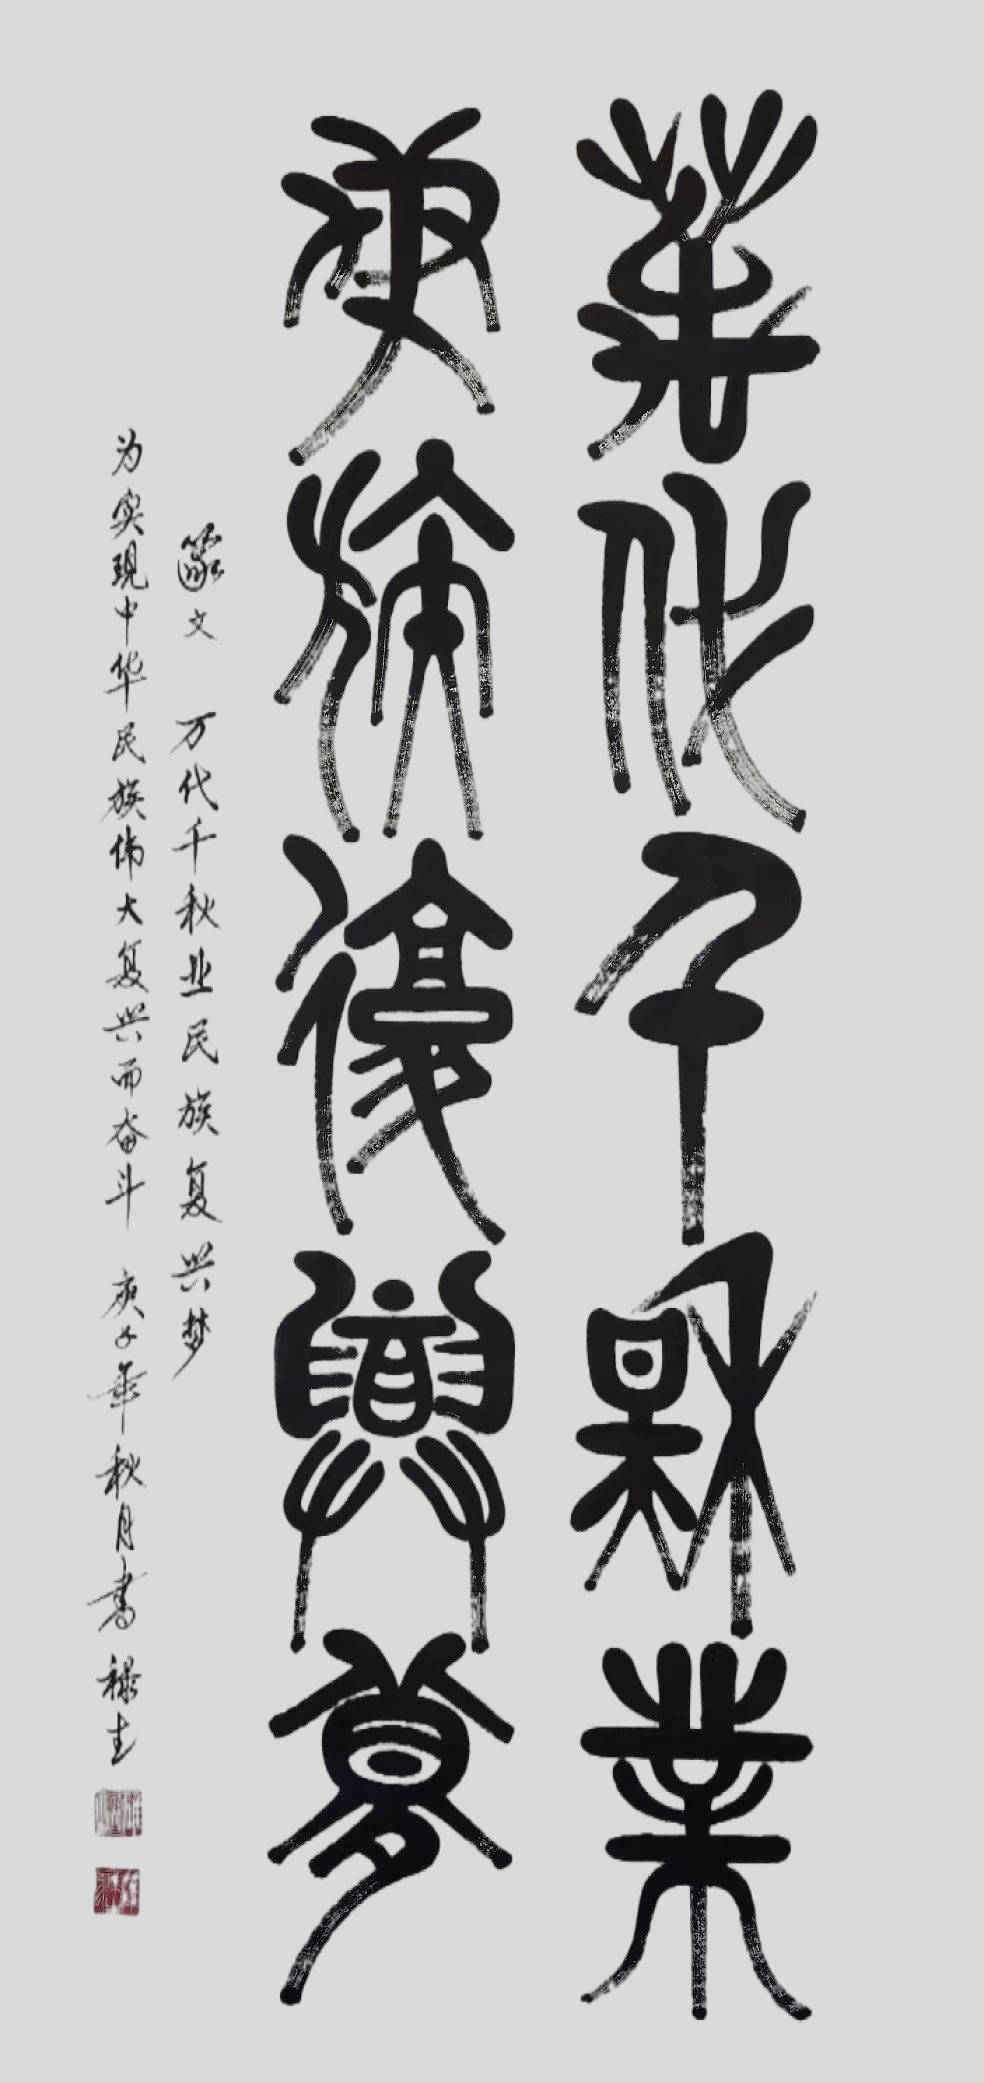 万代千秋业
民族复兴梦
篆文 万代千秋业民族复兴梦
为实现中华民族伟大复兴而奋斗 庚子年秋月书 禄生